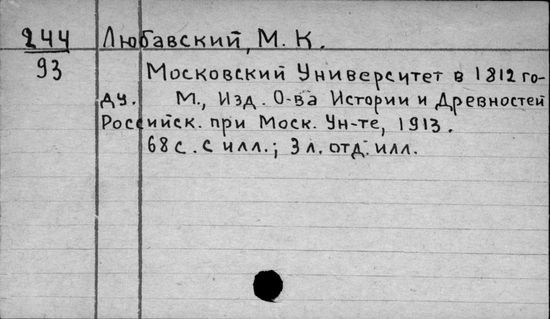 244 Любавский, М. К.
93 Московский Университет в 1812 го-
ду. М., Изд. О-ва Истории и Древностей
Российск. при Моск. Ун-те, 1913.
68 с. с илл.; 3 л. отд. илл.